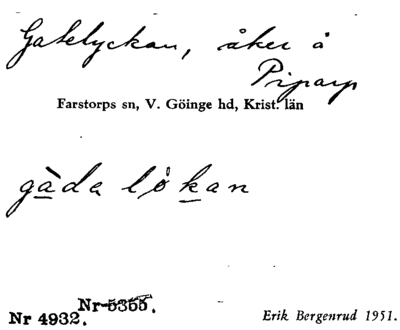 Gatelyckan, åker å
Priparp
Farstorps sn, V. Göinge hd, Krist. län
gàda lykan
Nr 5355.
Nr 4932.
Erik Bergenrud 1951.